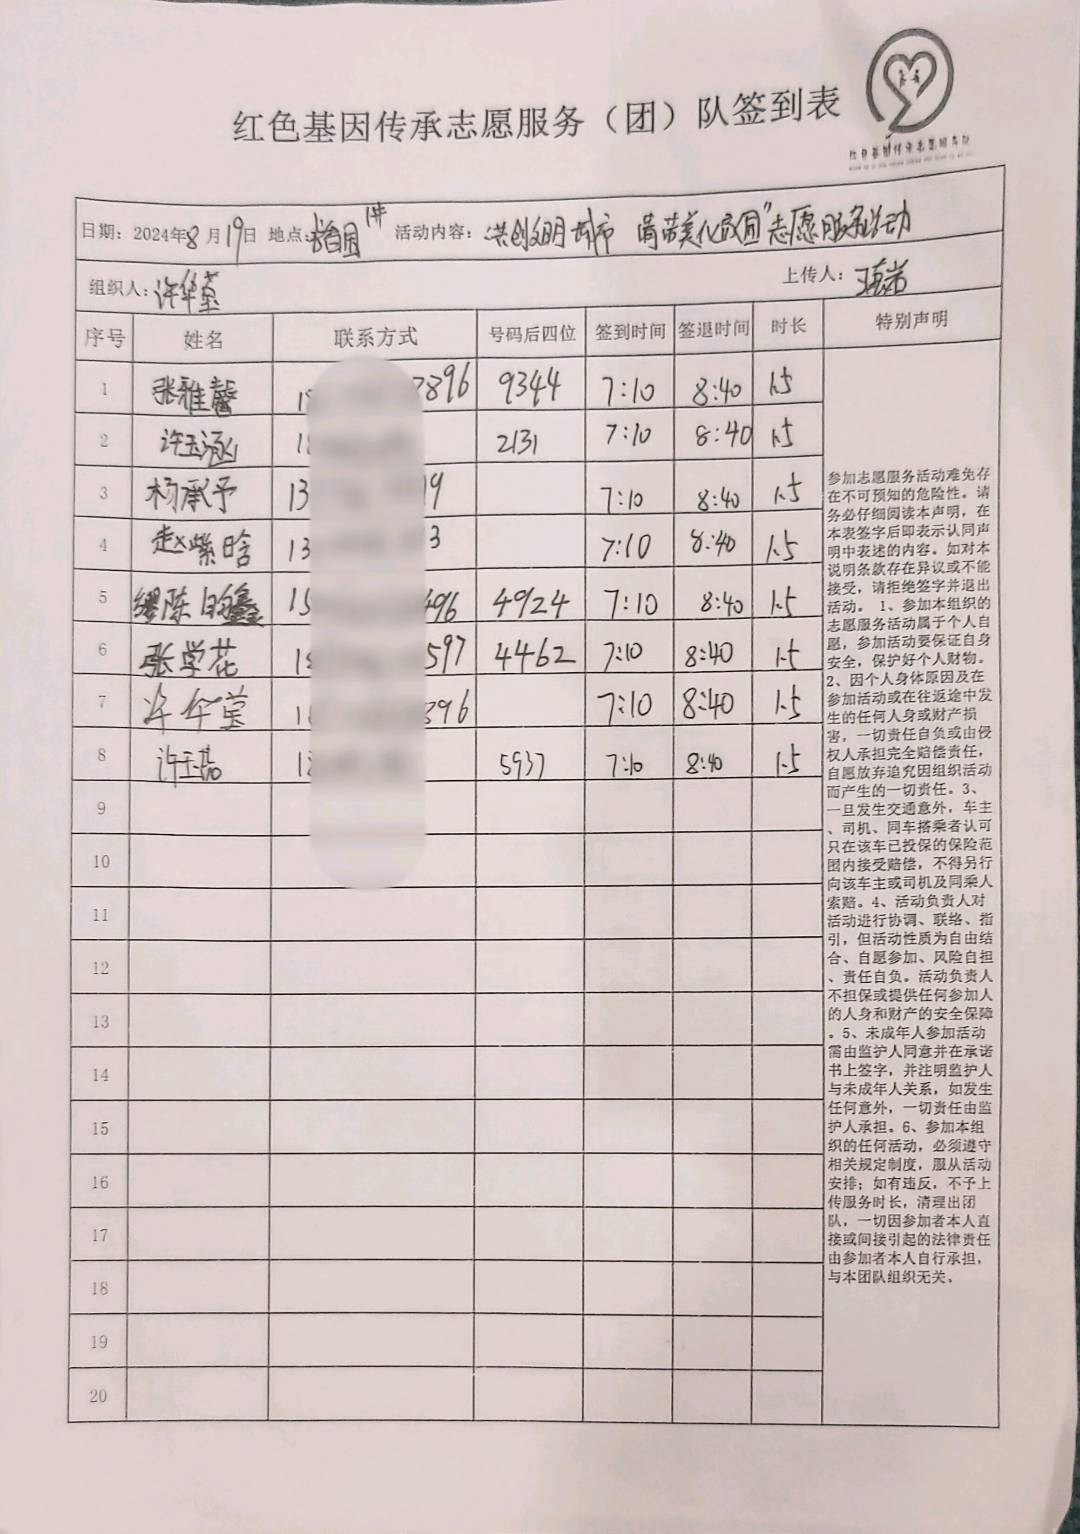 红色基因传承志愿服务（团）队签到表
日期：2024年8月19日 地点： 活动内容："共创文明城市 美化校园"志愿服务活动
组织人：许华莹 上传人：
序号 姓名 联系方式 号码后四位 签到时间 签退时间 时长 特别声明
1 张雅馨 18 3896 9344 7:10 8:40 1.5
2 许玉涵 1 2131 7:10 8:40 1.5
3 杨承予 13 19 7:10 8:40 1.5
4 赵紫晗 13 3 7:10 8:40 1.5
5 缪陈 鑫 15 496 4924 7:10 8:40 1.5
6 张学花 18 597 4462 7:10 8:40 1.5
7 许华莹 1 896 7:10 8:40 1.5
8 许玉 1 5937 7:10 8:40 1.5
9
10
11
12
13
14
15
16
17
18
19
20
参加志愿服务活动难免存
在不可预知的危险性。请
务必仔细阅读本声明，在
本表签字后即表示认同声
明中表述的内容。如对本
说明条款存在异议或不能
接受，请拒绝签字并退出
活动。 1、参加本组织的
志愿服务活动属于个人自
愿，参加活动要保证自身
安全，保护好个人财物。
2、因个人身体原因及在
参加活动或在往返途中发
生的任何人身或财产损
害，一切责任自负或由侵
权人承担完全赔偿责任，
自愿放弃追究因组织活动
而产生的一切责任。3、
一旦发生交通意外，车主
、司机、同车搭乘者认可
只在该车已投保的保险范
围内接受赔偿，不得另行
向该车主或司机及同乘人
索赔。4、活动负责人对
活动进行协调、联络、指
引，但活动性质为自由结
合、自愿参加、风险自担
、责任自负。活动负责人
不担保或提供任何参加人
的人身和财产的安全保障
。5、未成年人参加活动
需由监护人同意并在承诺
书上签字，并注明监护人
与未成年人关系，如发生
任何意外，一切责任由监
护人承担。6、参加本组
织的任何活动，必须遵守
相关规定制度，服从活动
安排；如有违反，不予上
传服务时长，清理出团
队，一切因参加者本人直
接或间接引起的法律责任
由参加者本人自行承担，
与本团队组织无关。